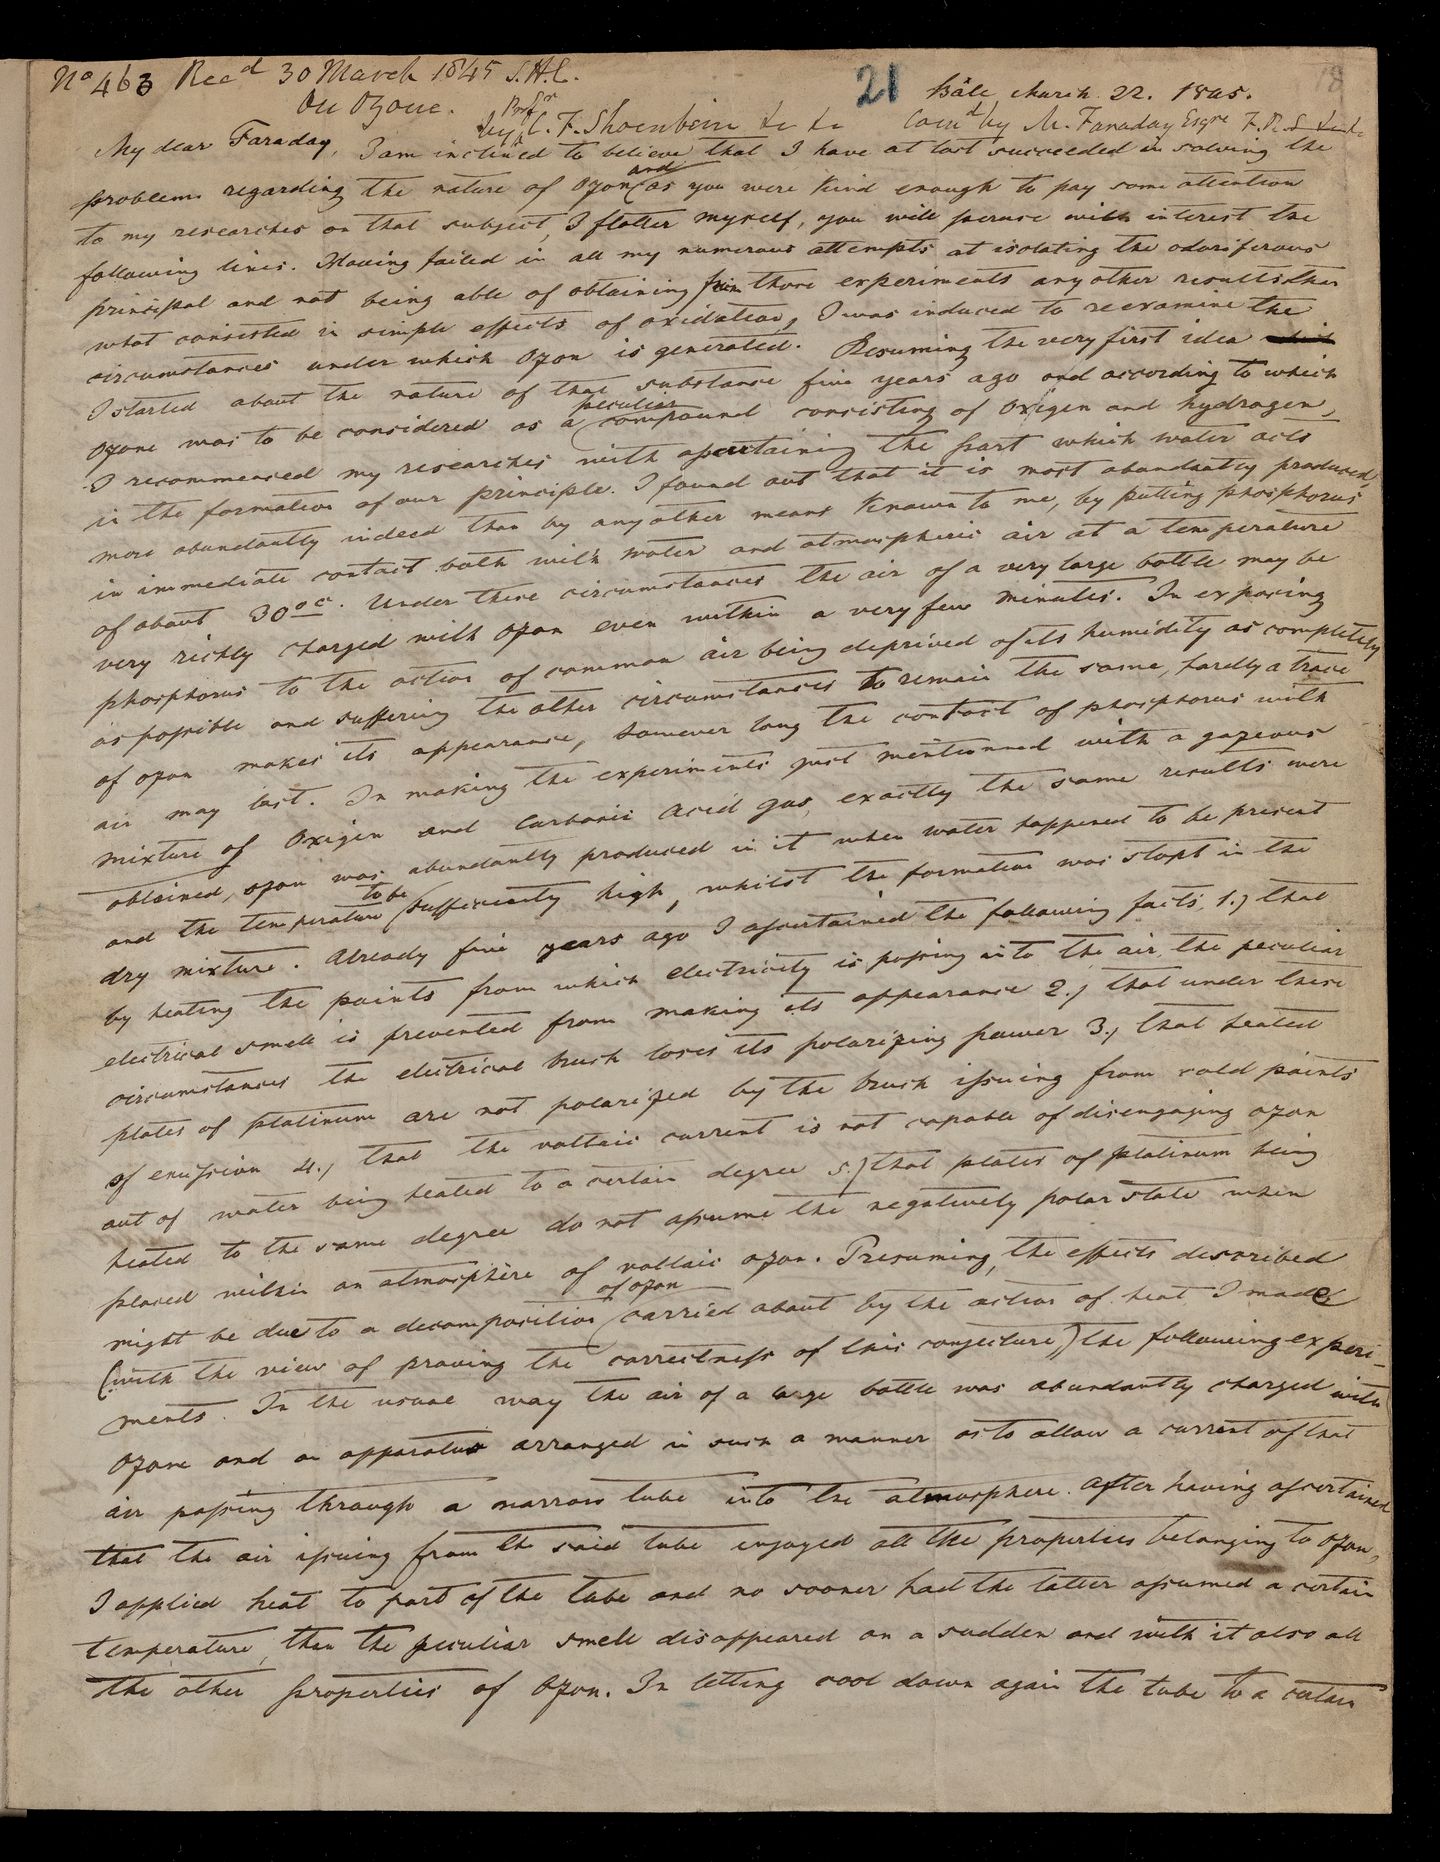 No 463 Recd 30 March 1845 S.H.C.
21
18
On Ozone.
Bâle March 22. 1845.
by Profsr C. F. Shoenbein &c &c Comd by M. Faraday Esqre F.R.S &c
My dear Faraday, I am inclined to believe that I have at last succeeded in solving the
problem regarding the nature of Ozon and as you were kind enough to pay some attention
to my researches on that subject, I flatter myself, you will peruse with interest the
following lines. Having failed in all my numerous attempts at isolating the odoriferous
principal and not being able of obtaining from those experiments any other results than
what consisted in simple effects of oxidation, I was induced to reexamine the
circumstances under which Ozon is generated. Resuming the very first idea
I started about the nature of that substance five years ago and according to which
Ozone was to be considered as a peculiar compound consisting of Oxigen and hydrogen,
I recommenced my researches with ascertaining the part which water acts
in the formation of our principle. I found out that it is most abundantly produced,
more abundantly indeed than by any other means known to me, by putting phosphorus
in immediate contact both with water and atmospheric air at a temperature
of about 30° C. Under these circumstances the air of a very large bottle may be
very richly charged with Ozon even within a very few minutes. In exposing
phosphorus to the action of common air being deprived of its humidity as completely
as possible and suffering the other circumstances to remain the same, hardly a trace
of ozon makes its appearance, however long the contact of phosphorus with
air may last. In making the experiments just mentionned with a gazeous
mixture of Oxigen and Carbonic acid gas, exactly the same results were
obtained, ozon was abundantly produced in it when water happened to be present
and the temperature to be sufficiently high, whilst the formation was stopt in the
dry mixture. Already five years ago I ascertained the following facts, 1.) that
by heating the points from which electricity is passing into the air, the peculiar
electrical smell is prevented from making its appearance 2.) that under these
circumstances the electrical brush loses its polarizing power 3.) that heated
plates of platinum are not polarized by the brush issuing from cold points
of emission 4.) that the voltaic current is not capable of disengaging ozon
out of water being heated to a certain degree 5.) that plates of platinum being
heated to the same degree do not assume the negatively polar state when
placed within an atmosphere of voltaic ozon. Presuming, the effects described
might be due to a decomposition of ozon carried about by the action of heat I made
(with the view of proving the correctness of this conjecture) the following experi-
ments. In the usual way the air of a large bottle was abundantly charged with
Ozone and an apparatus arranged in such a manner as to allow a current of that
air passing through a narrow tube into the atmosphere. After having ascertained
that the air issuing from the said tube enjoyed all the properties belonging to Ozon,
I applied heat to part of the tube and no sooner had the latter assumed a certain
temperature, than the peculiar smell disappeared on a sudden and with it also all
the other properties of Ozon. In letting cool down again the tube to a certain